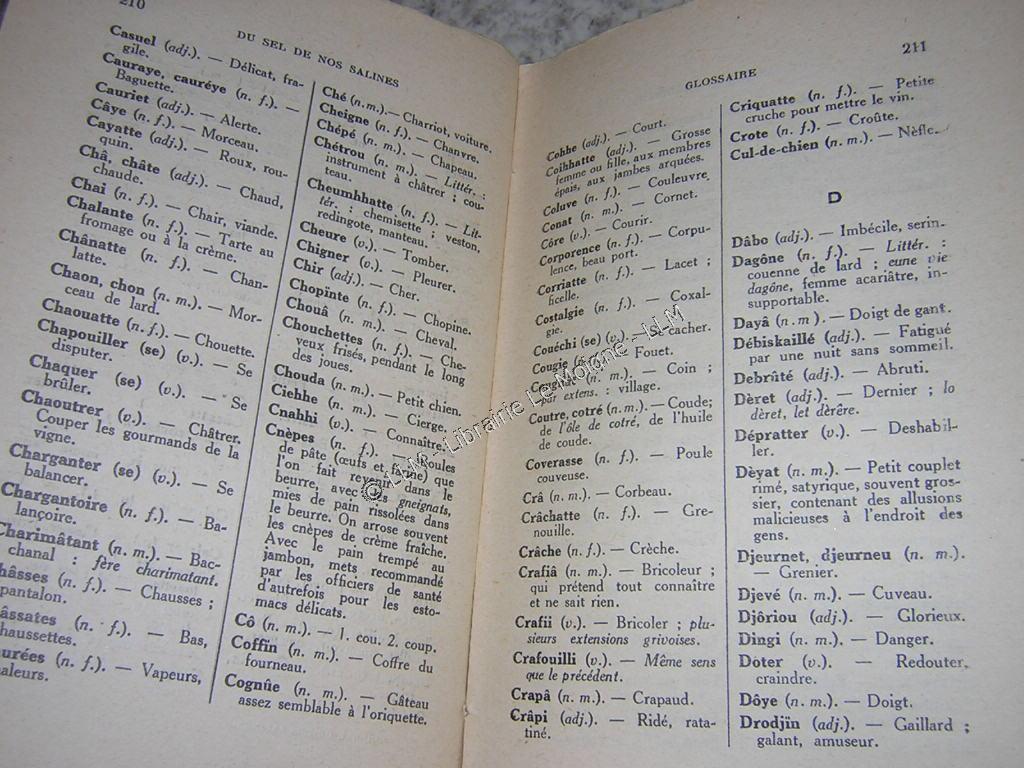 210
DU SEL DE NOS SALINES
Casuel (adj.). — Délicat, fra-
gile.
Cauraye, cauréye (n. f.). —
Baguette.
Cauriet (adj.). — Alerte.
Câye (n. f.). — Morceau.
Cayatte (adj.). — Roux, rou-
quin.
Châ, châte (adj.). — Chaud,
chaude.
Chai (n. f.). — Chair, viande.
Chalante (n. f.). — Tarte au
fromage ou à la crème.
Chânatte (n. f.). — Chan-
latte.
Chaon, chon (n. m.). — Mor-
ceau de lard.
Chaouatte (n. f.). — Chouette.
Chapouiller (se) (v.). — Se
disputer.
Chaquer (se) (v.). — Se
brûler.
Chaoutrer (v.). — Châtrer.
Couper les gourmands de la
vigne.
Charganter (se) (v.). — Se
balancer.
Chargantoire (n. f.). — Ba-
lançoire.
Charimâtant (n. m.). — Bac-
chanal : fère charimatant.
hâsses (n. f.). — Chausses ;
pantalon.
âssates (n. f.). — Bas,
haussettes.
urées (n. f.). — Vapeurs,
aleurs.
Ché (n. m.). — Charriot, voiture.
Cheigne (n. f.). — Chanvre.
Chépé (n. m.). — Chapeau.
Chétrou (n. m.). — Littér. :
instrument à châtrer ; cou-
teau.
Cheumhhatte (n. f.). — Lit-
tér. : chemisette ; veston,
redingote, manteau.
Cheure (v.). — Tomber.
Chigner (v.). — Pleurer.
Chir (adj.). — Cher.
Chopinte (n. f.). — Chopine.
Chouâ (n. m.). — Cheval.
Chouchettes (n. f.). — Che-
veux frisés, pendant le long
des joues.
Chouda (n. m.). — Petit chien.
Ciehhe (n. m.). — Cierge.
Cnahhi (v.). — Connaître.
Cnèpes (n. f.). — Boules
de pâte (œufs et farine) que
l'on fait revenir dans le
beurre, avec des gneignats,
mies de pain rissolées dans
le beurre. On arrose souvent
les cnèpes de crème fraîche.
Avec le pain trempé au
jambon, mets recommandé
par les officiers de santé
d'autrefois pour les esto-
macs délicats.
Cô (n. m.). — 1. cou. 2. coup.
Coffin (n. m.). — Coffre du
fourneau.
Cognûe (n. m.). — Gâteau
assez semblable à l'oriquette.
GLOSSAIRE
211
Cohhe (adj.). — Court.
Coihhatte (adj.). — Grosse
femme ou fille, aux membres
épais, aux jambes arquées.
Coluve (n. f.). — Couleuvre.
Conat (n. m.). — Cornet.
Côre (v.). — Courir.
Corporence (n. f.). — Corpu-
lence, beau port.
Corriatte (n. f.). — Lacet ;
ficelle.
Costalgie (n. f.). — Coxal-
gie.
Couéchi (se) (v.). — Se cacher.
Cougie (n. f.). — Fouet.
(n. m.). — Coin ;
par extens. : village.
Coutre, cotré (n. m.). — Coude;
de l'ôle de cotré, de l'huile
de coude.
Coverasse (n. f.). — Poule
couveuse.
Crâ (n. m.). — Corbeau.
Crâchatte (n. f.). — Gre-
nouille.
Crâche (n. f.). — Crèche.
Crafiâ (n. m.). — Bricoleur ;
qui prétend tout connaître
et ne sait rien.
Crafii (v.). — Bricoler ; plu-
sieurs extensions grivoises.
Crafouilli (v.). — Même sens
que le précédent.
Crapâ (n. m.). — Crapaud.
Crâpi (adj.). — Ridé, rata-
tiné.
Criquatte (n. f.). — Petite
cruche pour mettre le vin.
Crote (n. f.). — Croûte.
Cul-de-chien (n. m.). — Nèfle.
D
Dâbo (adj.). — Imbécile, serin.
Dagône (n. f.). — Littér. :
couenne de lard ; eune vie
dagône, femme acariâtre, in-
supportable.
Dayâ (n.m). — Doigt de gant.
Débiskaillé (adj.). — Fatigué
par une nuit sans sommeil.
Debrûté (adj.). — Abruti.
Dèret (adj.). — Dernier ; lo
dèret, let dèrère.
Dépratter (v.). — Deshabil-
ler.
Dèyat (n. m.). — Petit couplet
rimé, satyrique, souvent gros-
sier, contenant des allusions
malicieuses à l'endroit des
gens.
Djeurnet, djeurneu (n. m.).
— Grenier.
Djevé (n. m.). — Cuveau.
Djôriou (adj.). — Glorieux.
Dingi (n. m.). — Danger.
Doter (v.). — Redouter,
craindre.
Dôye (n. m.). — Doigt.
Drodjïn (adj.). — Gaillard ;
galant, amuseur.
© LLM - Librairie Le Moigne - LLM